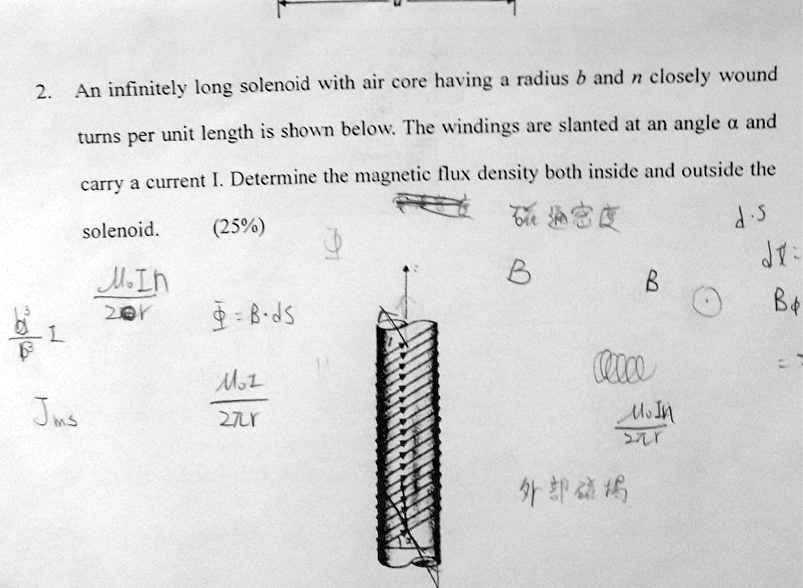 2. An infinitely long solenoid with air core having a radius b and n closely wound
turns per unit length is shown below. The windings are slanted at an angle α and
carry a current I. Determine the magnetic flux density both inside and outside the
solenoid. (25%)
磁通密度
d·S
Φ
dl =
μ₀In
B
B
Bφ
2r
Φ = B·ds
I
μ₀I
2πr
Jms
μ₀In
2πr
外部磁場